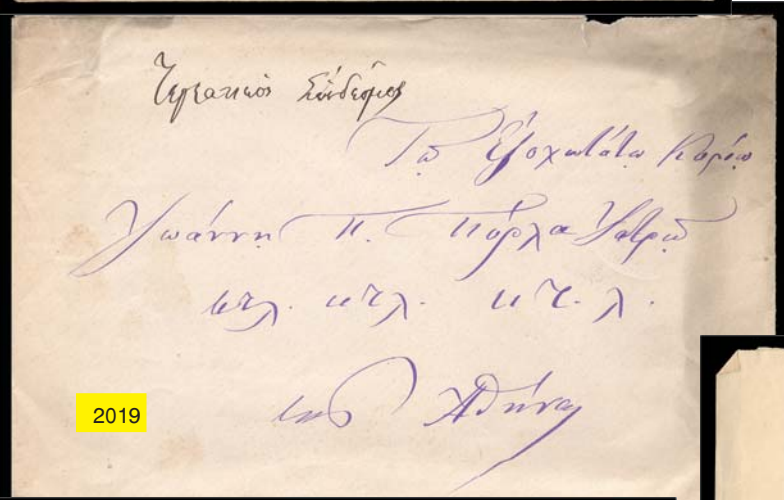 Ἱερατικὸς Σύνδεσμος
Τῷ Ἐξοχωτάτῳ Κυρίῳ
Ἰωάννῃ Π. Πύρλα Ἰατρῷ
κτλ. κτλ. κ τ. λ.
εἰς Ἀθήνας
2019